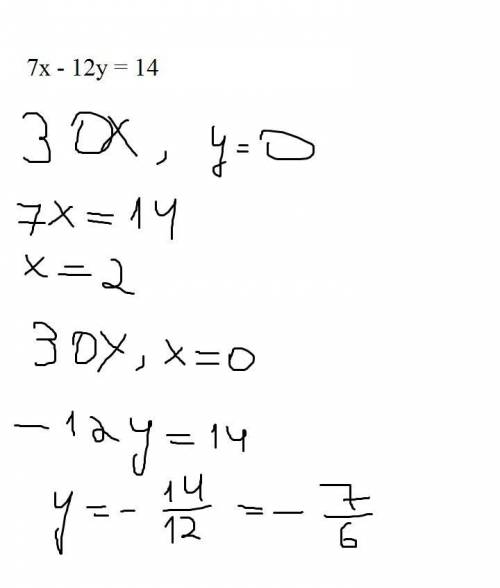 7x - 12y = 14
З OX, y=0
7x=14
x=2
З OY, x=0
-12y=14
y=-14/12=-7/6